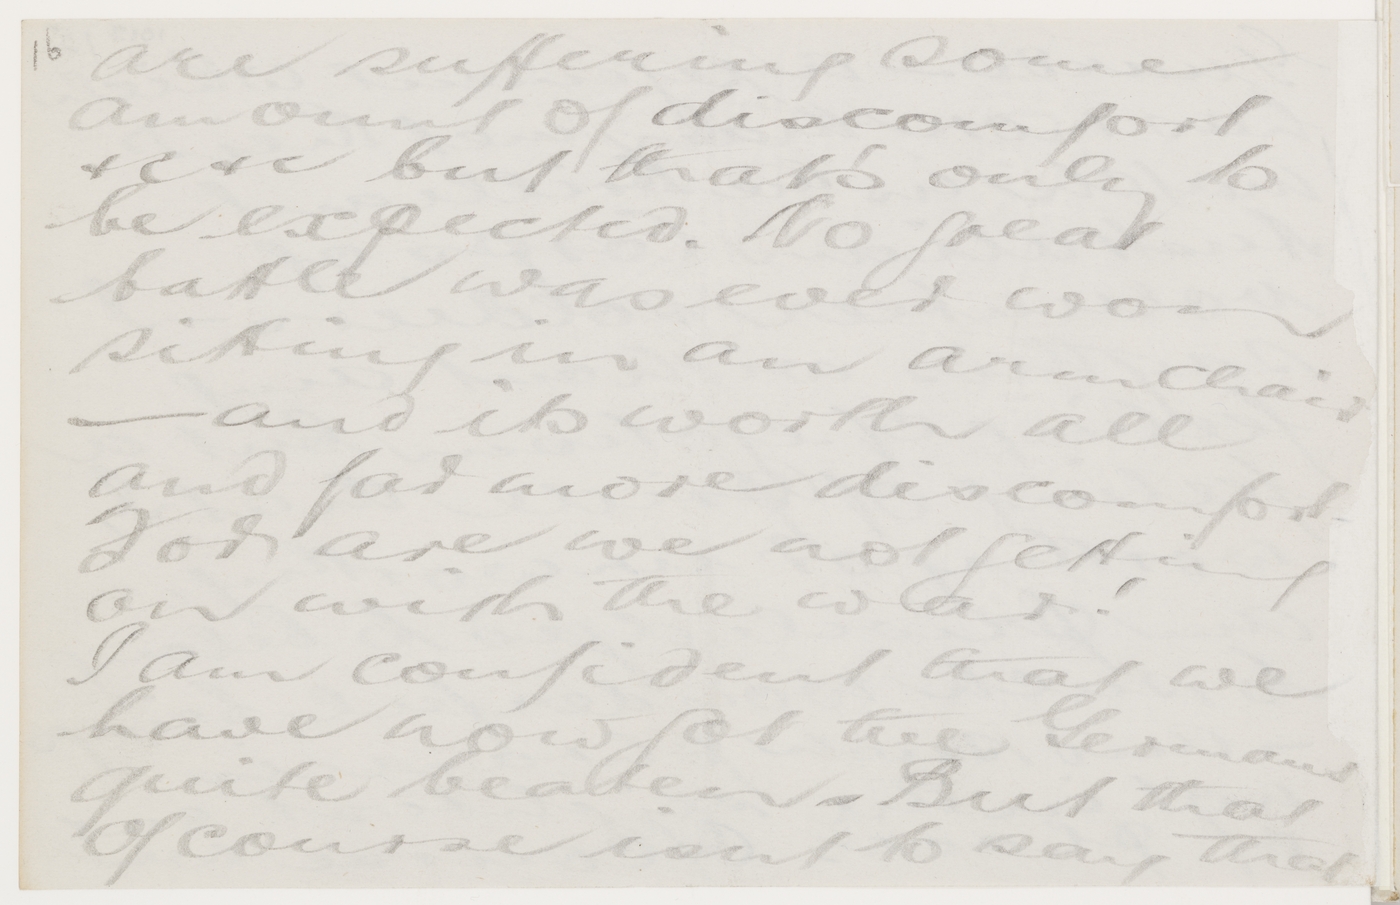 16
are suffering some
amount of discomfort
&c &c but that's only to
be expected. No great
battle was ever won
sitting in an armchair
— and its worth all
and far more discomfort
For are we not getting
on with the war!
I am confident that we
have now got the Germans
quite beaten. But that
of course isnt to say that